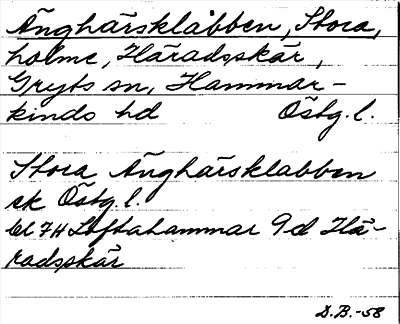 Änghärsklabben, Stora,
holme, Häradsskär,
Gryts sn, Hammar-
kinds hd Östg.l.
Stora Änghärsklabben
sk Östg.l.
bl 7H Loftahammar 9d Hä-
radsskär
D.B.-58